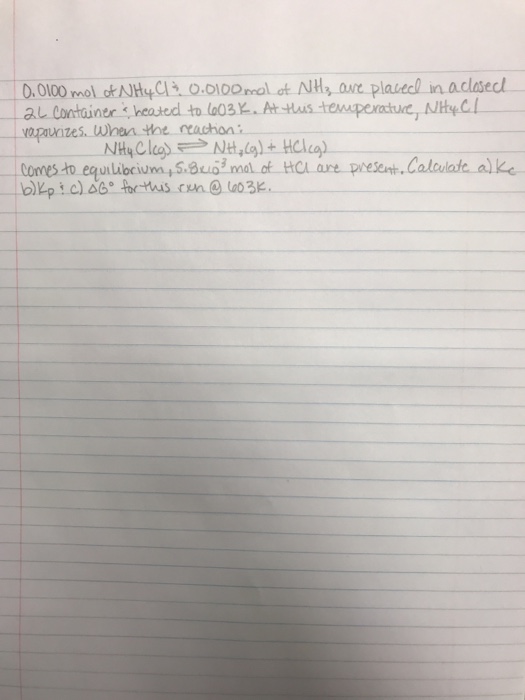 0.0100 mol of NH4Cl & 0.0100mol of NH3 are placed in a closed
2L Container & heated to 603K. At this temperature, NH4Cl
vapourizes. When the reaction:
NH4Cl(g) ⇌ NH3(g) + HCl(g)
Comes to equilibrium, 5.8x10⁻³ mol of HCl are present. Calculate a) Kc
b) Kp & c) ΔG° for this rxn @ 603K.